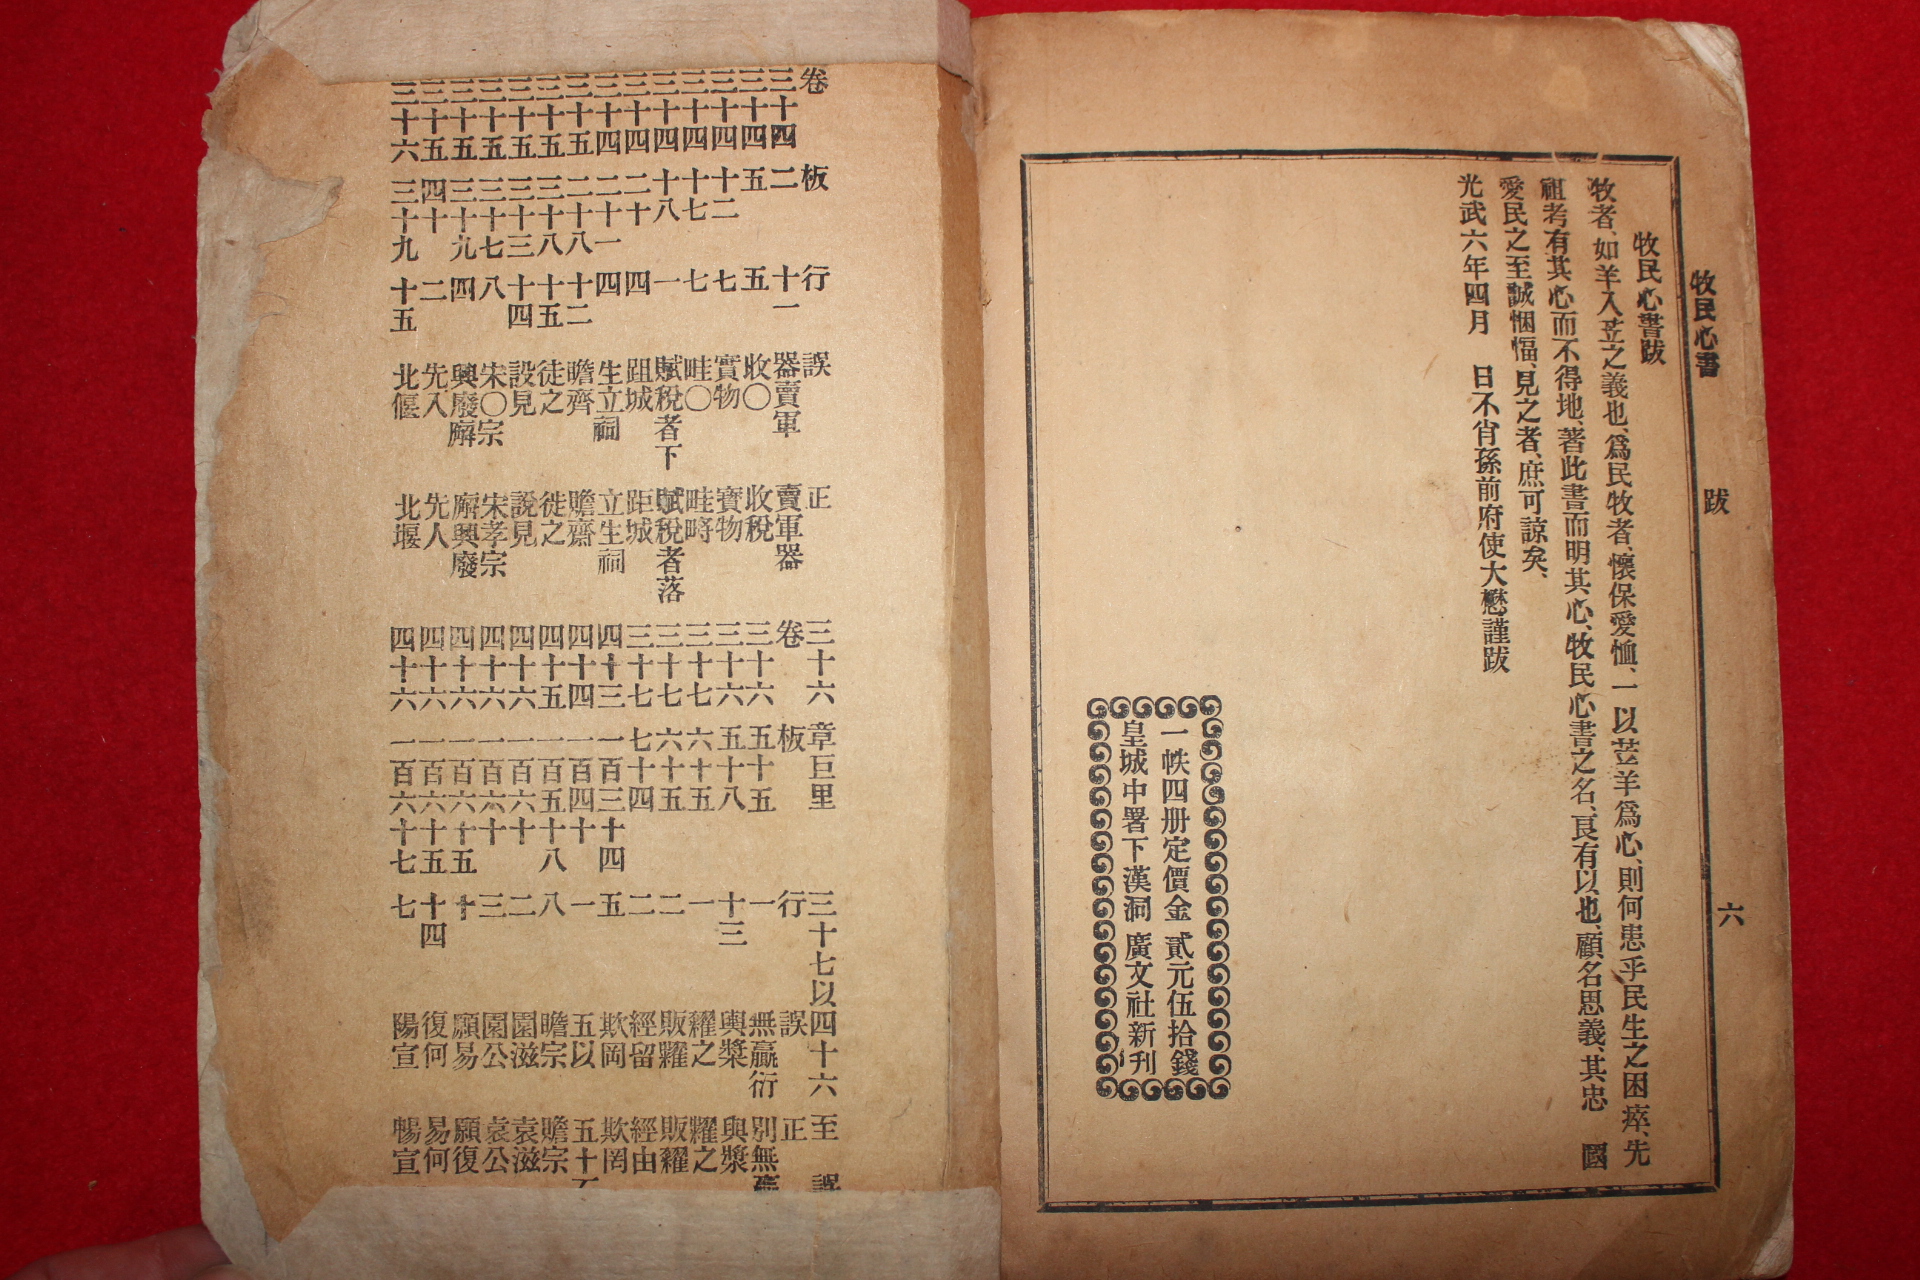 牧民心書
跋
六
牧民心書跋
牧者、如羊入苙之義也、爲民牧者、懷保愛恤、一以苙羊爲心、則何患乎民生之困瘁、先
祖考有其心而不得地、著此書而明其心、牧民心書之名、良有以也、顧名思義、其忠 國
愛民之至誠悃愊、見之者、庶可諒矣、
光武六年四月 日不肖孫前府使大懋謹跋
一帙四册定價金 貳元伍拾錢
皇城中署下漢洞 廣文社新刊
卷 板 行 誤 正
三十四 二 十一 器賣軍 賣軍器
三十四 五 五 收〇 收稅
三十四 十二 七 實物 寶物
三十四 十七 七 畦〇 畦畤
三十四 十八 一 賦稅者下 賦稅者落
三十四 二十 四 跙城 距城
三十四 二十一 四 生立祠 立生祠
三十五 二十八 十二 瞻齊 贍齋
三十五 三十八 十五 徒之 徙之
三十五 三十三 十四 設見 說見
三十五 三十七 八 宋〇宗 宋孝宗
三十五 三十九 四 興廢廨 廨興廢
三十五 四十 二 先入 先人
三十六 三十九 十五 北偃 北堰
三十六 章巨里 三十七以四十六至 誤
卷 板 行 誤 正
三十六 五十五 一 無贏衍 別無
三十六 五十八 十三 輿槳 與漿
三十七 六十五 一 糶之 糴之
三十七 六十五 二 販糶 販糴
三十七 七十四 二 經留 經由
四十三 一百三十四 五 欺岡 欺罔
四十四 一百四十 一 五以 五十
四十五 一百五十八 八 瞻宗 贍宗
四十六 一百六十 二 園滋 袁滋
四十六 一百六十 三 園公 袁公
四十六 一百六十五 十 願易 願復
四十六 一百六十五 十四 復何 易何
四十六 一百六十七 七 陽宣 暢宣